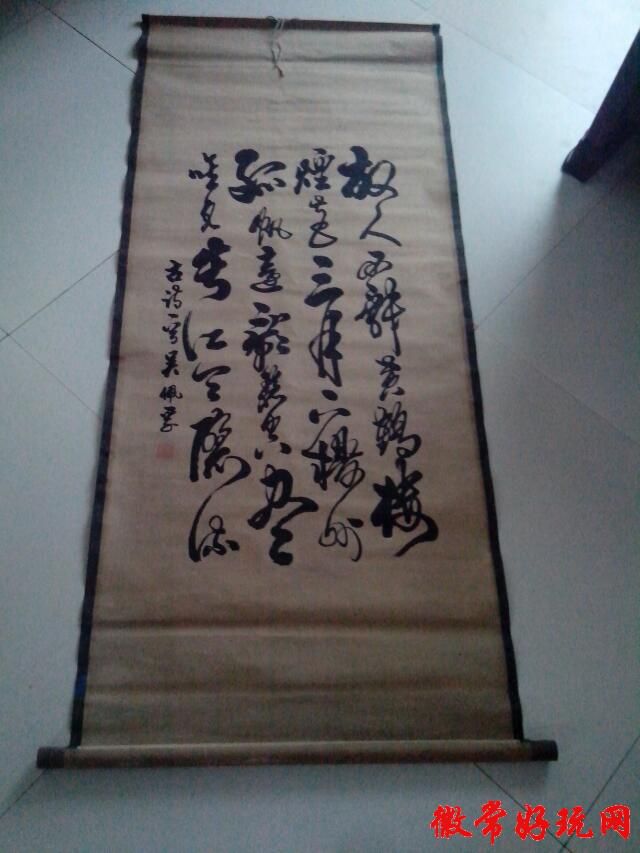 故人西辭黄鶴樓
煙花三月下揚州
孤帆遠影碧空尽
唯見長江天際流
古詩一首吳佩孚
徽常好玩网